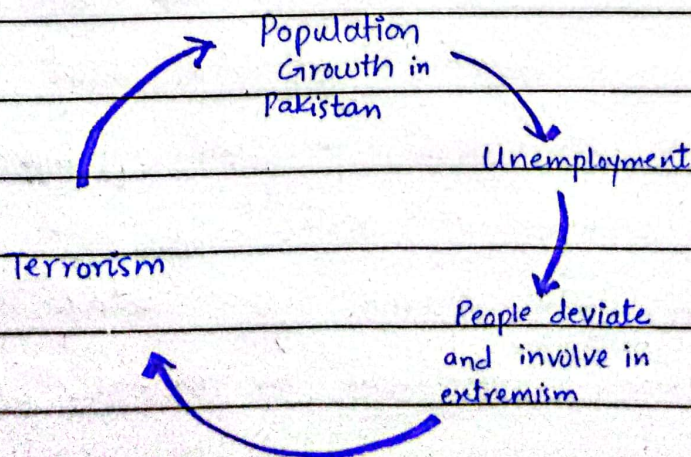 Population
Growth in
Pakistan
Unemployment
People deviate
and involve in
extremism
Terrorism